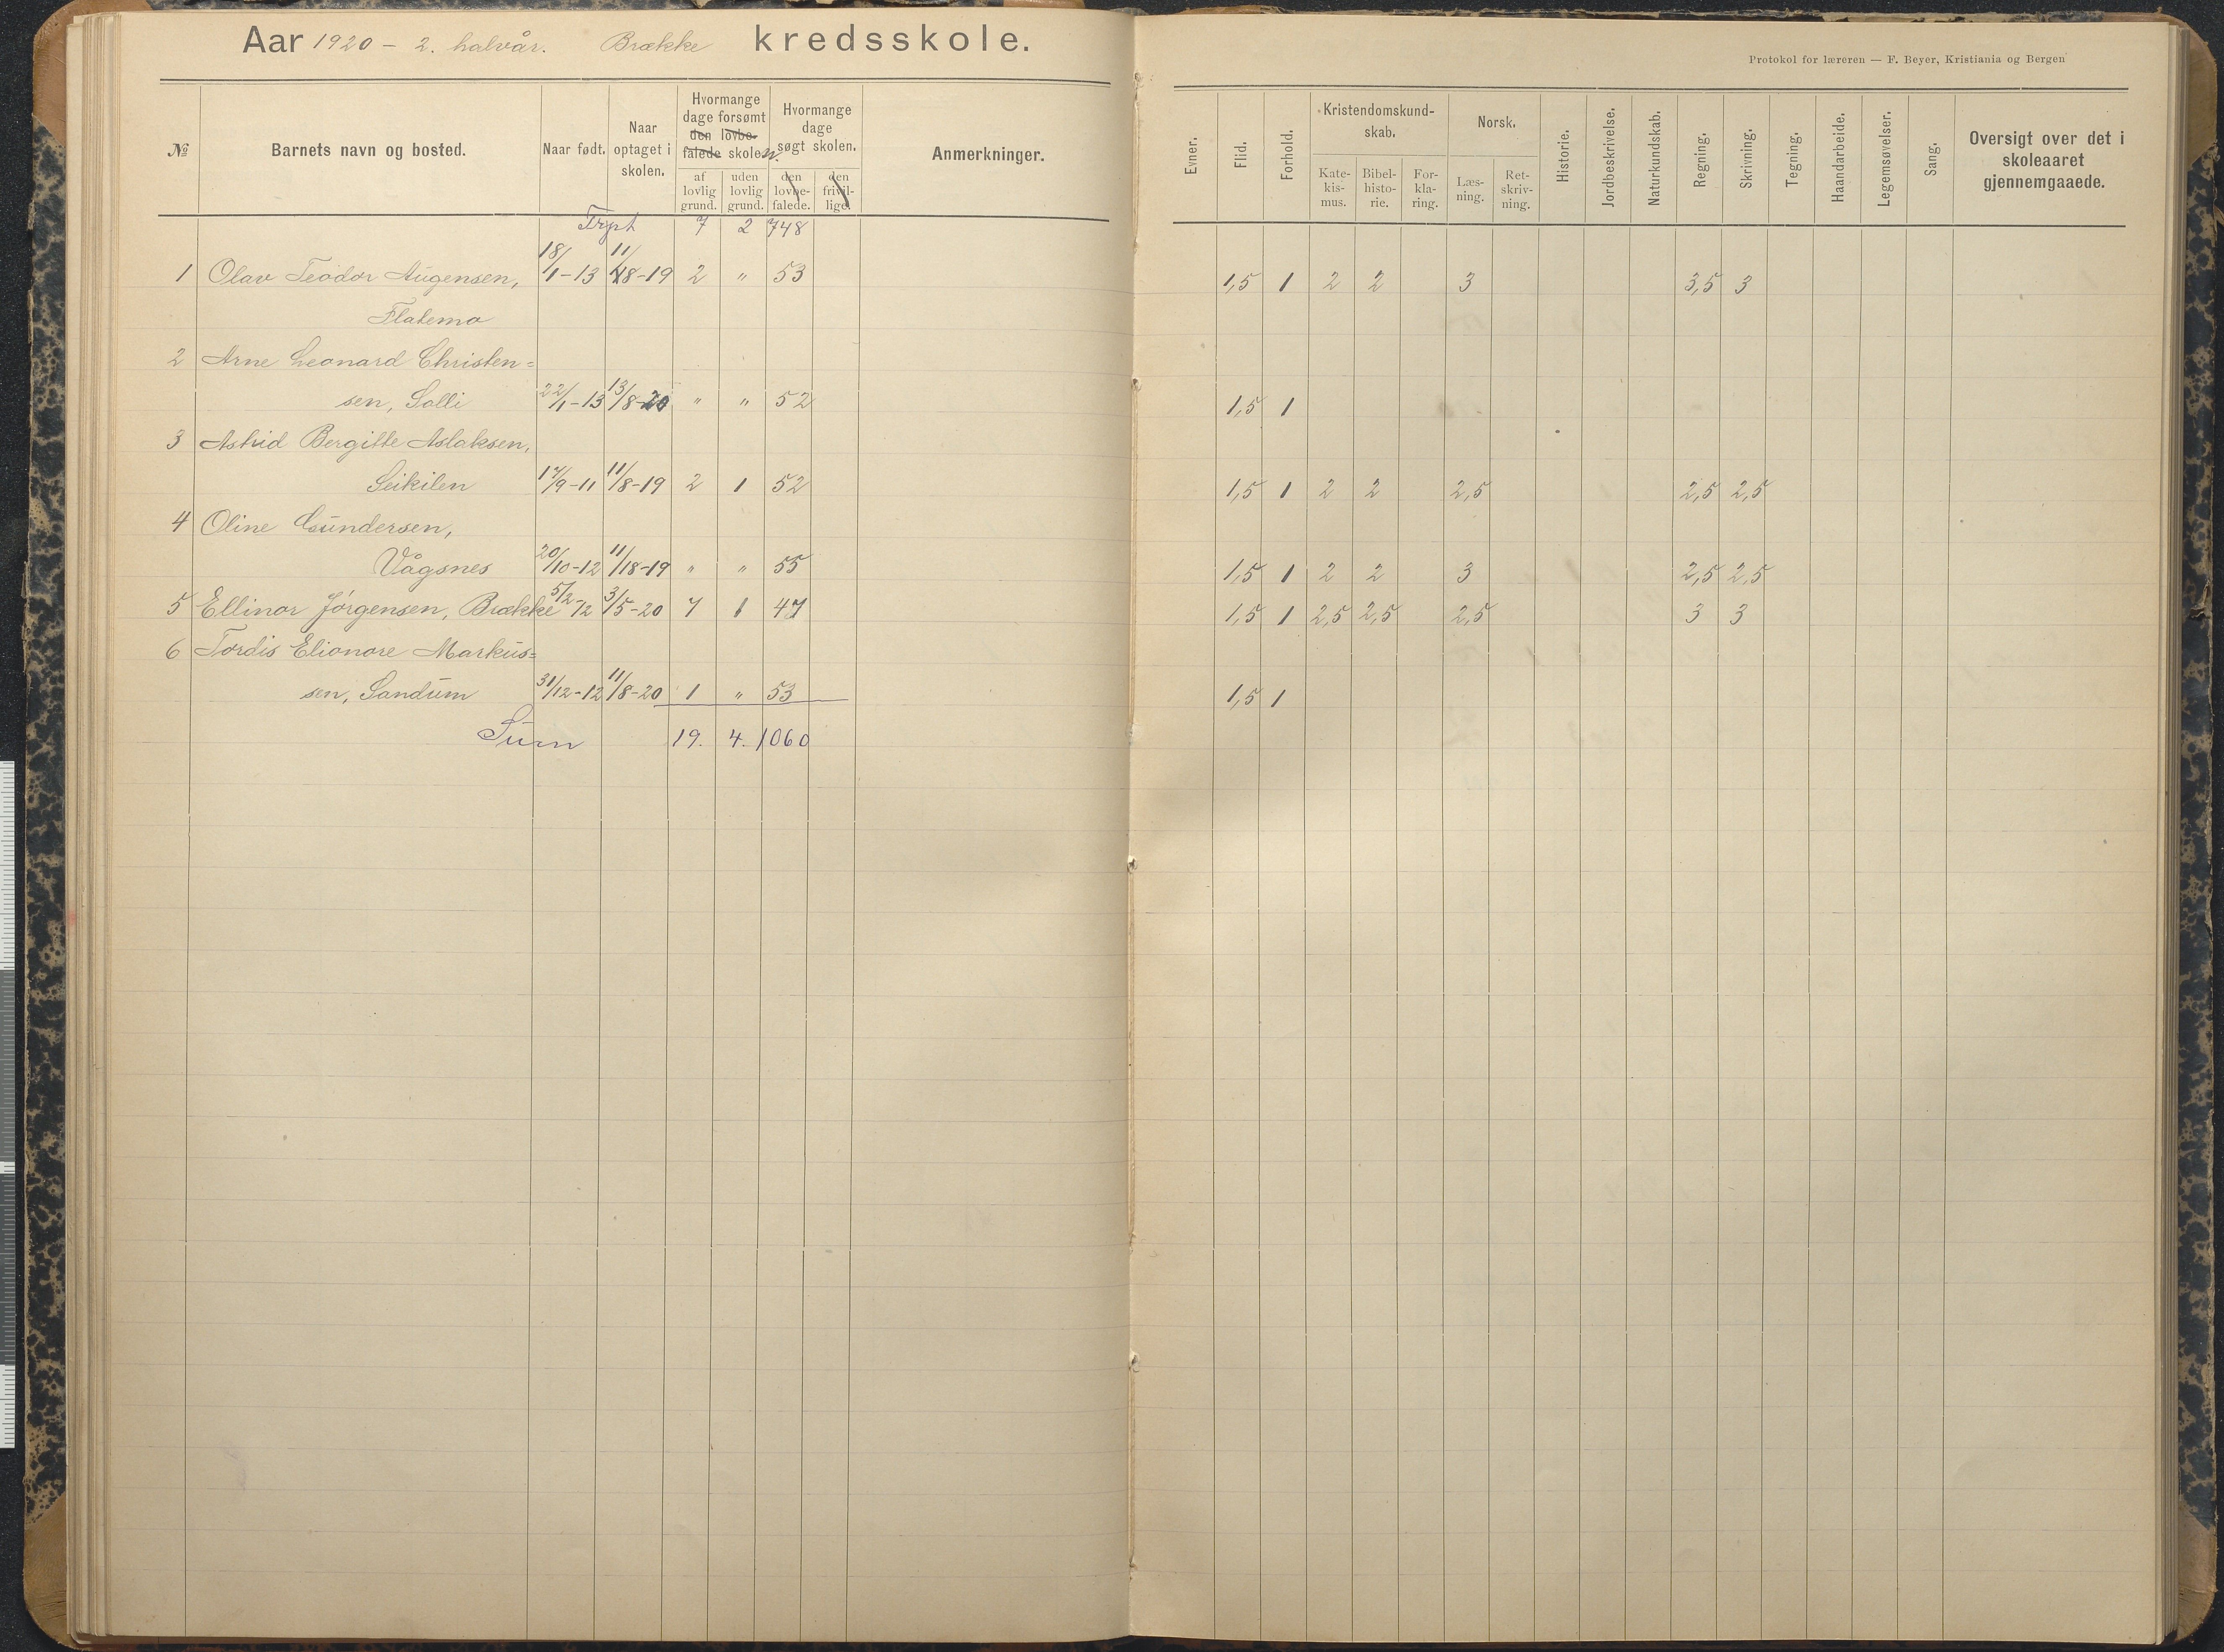 Aar 1920 - 2. halvår. Brække kredsskole.
Protokol for læreren — F. Beyer, Kristiania og Bergen
№ Barnets navn og bosted. Naar født. Naar optaget i skolen. Hvormange dage forsømt den lovbe-falede skolen. af lovlig grund. uden lovlig grund. Hvormange dage søgt skolen. den lovbe-falede. den frivil-lige. Anmerkninger.
Evner. Flid. Forhold. Kristendomskund-skab. Kate-kis-mus. Bibel-histo-rie. For-kla-ring. Norsk. Læs-ning. Ret-skriv-ning. Historie. Jordbeskrivelse. Naturkundskab. Regning. Skrivning. Tegning. Haandarbeide. Legemsøvelser. Sang. Oversigt over det i skoleaaret gjennemgaaede.
7 2 748
1 Olav Teodor Augensen, 18/1-13 11/8-19 2 " 53 1,5 1 2 2 3 3,5 3
Flatemo
2 Arne Leonard Christen=
sen, Solli 22/1-13 13/8-20 " " 52 1,5 1
3 Astrid Bergitte Aslaksen,
Seikilen 17/9-11 11/8-19 2 1 52 1,5 1 2 2 2,5 2,5 2,5
4 Oline Gundersen,
Vågsnes 20/10-12 11/18-19 " " 55 1,5 1 2 2 3 2,5 2,5
5 Ellinor Jørgensen, Brække 5/2-12 3/5-20 7 1 47 1,5 1 2,5 2,5 2,5 3 3
6 Tordis Elionore Markus=
sen, Sandum 31/12-12 11/8-20 1 " 53 1,5 1
Sum 19. 4. 1060